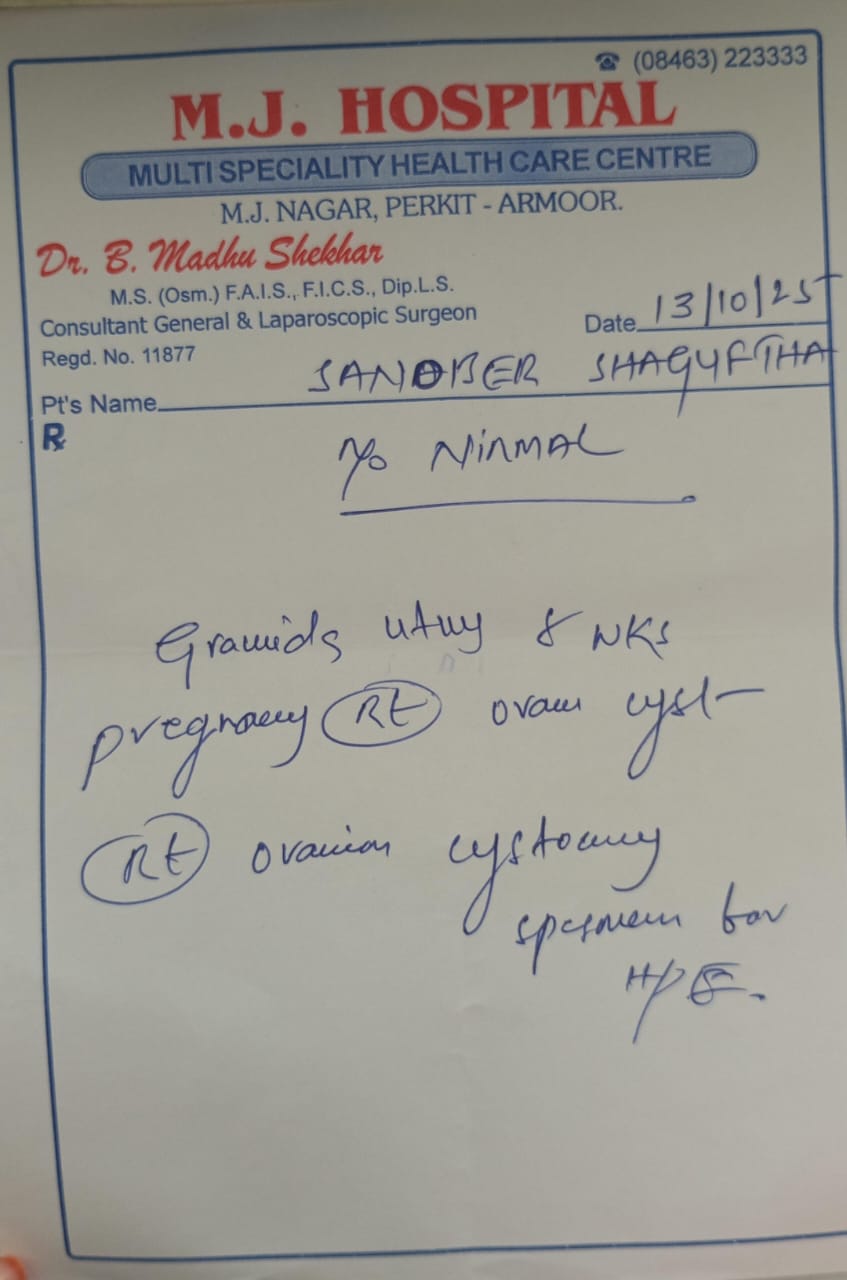 ☎ (08463) 223333
M.J. HOSPITAL
MULTI SPECIALITY HEALTH CARE CENTRE
M.J. NAGAR, PERKIT - ARMOOR.
Dr. B. Madhu Shekhar
M.S. (Osm.) F.A.I.S., F.I.C.S., Dip.L.S.
Consultant General & Laparoscopic Surgeon
Date 13/10/25
Regd. No. 11877
Pt's Name SANOBER SHAGUFTHA
Rx
R/o NIRMAL
Gravida 8 WKS
pregnancy Rt ovarian cyst
Rt ovarian cystectomy
specimen for
HPE.